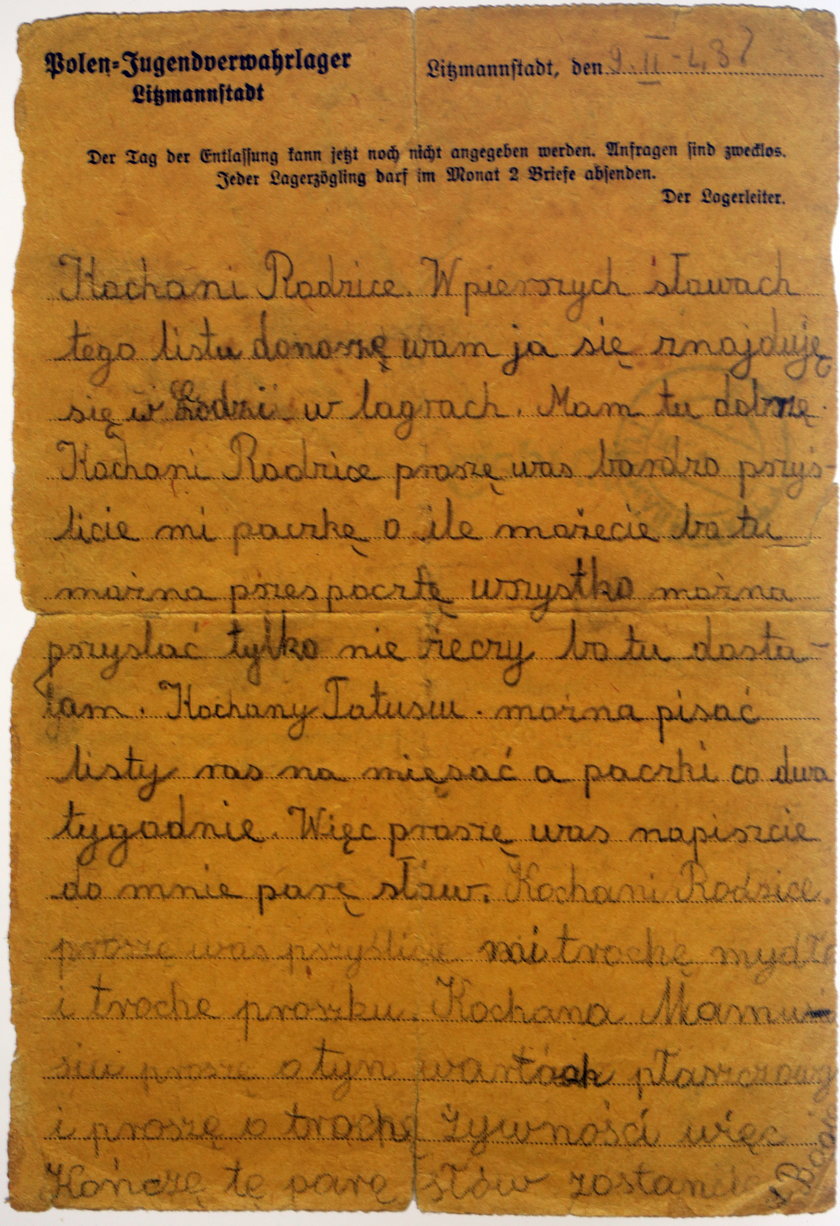 Polen-Jugendverwahrlager
Litzmannstadt
Litzmannstadt, den 9. II - 43
Der Tag der Entlassung kann jetzt noch nicht angegeben werden. Anfragen sind zwecklos.
Jeder Lagerzögling darf im Monat 2 Briefe absenden.
Der Lagerleiter.
Kochani Rodzice. W pierszych słowach
tego listu donoszę wam ja się znajduję
się w Łodzi w lagrach. Mam tu dobrzę.
Kochani Rodzice proszę was bardzo przyś-
licie mi paczkę o ile możecie bo tu
można przes pocztę wszystko można
przysłać tylko nie rzeczy bo tu dosta-
łam. Kochany Tatusiu. można pisać
listy ras na mięsać a paczki co dwa
tygodnie. Więc proszę was napiszcie
do mnie parę słów. Kochani Rodzice.
proszę was pszyślicie mi trochę mydła
i troche proszku. Kochana Mamu-
siu proszę o tyn
i proszę o trochę żywności więc
Kończę tę parę słów zostańcie
z Bogiem